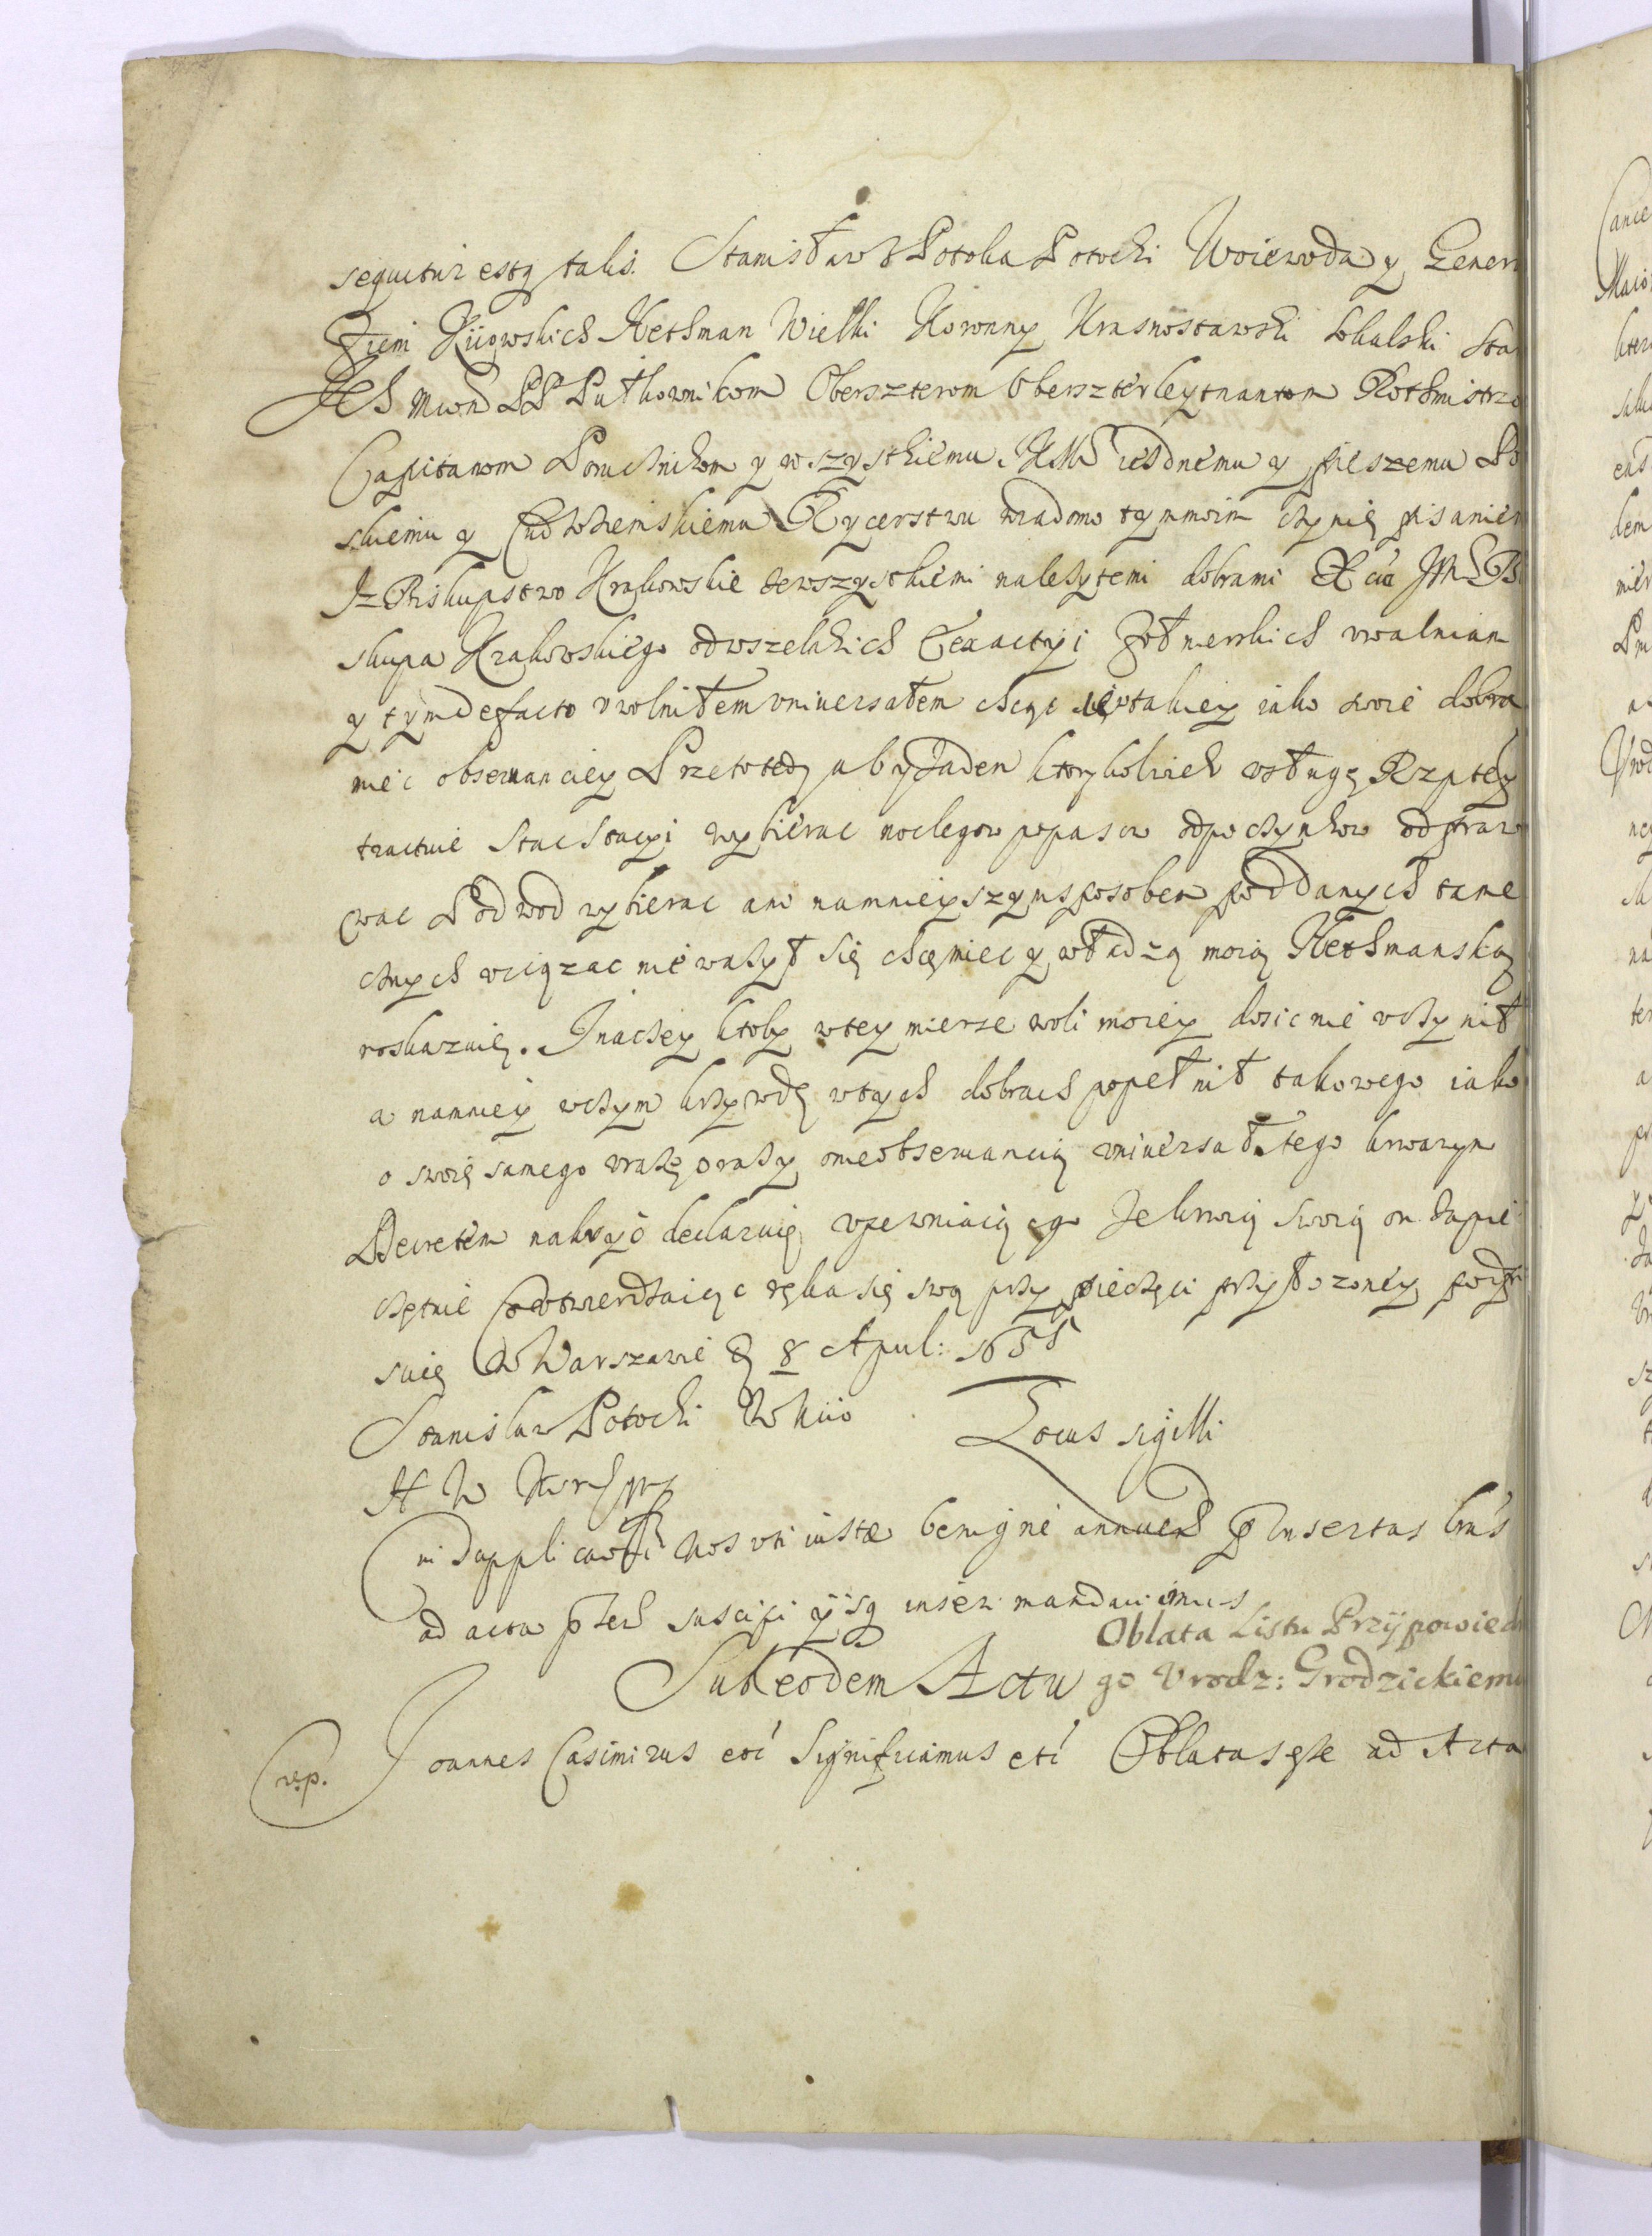 sequitur estq talis. Stanisław z Potoka Potocki Woiewoda y Genera
Ziem Kiiowskich Hethman Wielki Koronny Krasnostawski Sokalski Sta
Ich Mwm PP Pułkownikom Obersterom Oberszterleytnantom Rothmistrzo
Capitanom Porucznikom y wszystkiemu JKM iezdnemu y pieszemu Po
skiemu y Cudzoziemskiemu Rycerstwu wiadomo tym moim czynię pisaniem
Iz Biskupstwo Krakowskie ze wszystkiemi należytemi dobrami Xcia JM Bi
skupa Krakowskiego od wszelakich Exactyi Zołnierskich vwalniam
y tym de facto vwolniłem vniuersałem chcąc ie w takiey iako swoie dobra
miec obseruanciey Przeto tedy aby żaden ktorykolwiek w sługę Rzptey
tractuie Stac Stacyi wybierac noclegow popasow odpoczynkow odpraw
owac Podwod wybierac ani namnieyszym sposobem poddanych tame
cznych vciązac nie ważył się chcę miec y władzą moią Hethmanską
roskazuię. Inaczey ktoby w tey mierze woli moiey dosic nie vczynił
a namniey w czym krzywdę w tych dobrach popełnił takowego iako
o swoię samego vrazę o razy o nieobseruancią vniuersału tego krwawym
Decretem nakryc declaruię vpewniaiąc go Ze krwią swoią on zapie
czętuie Co stwierdzaiąc ręką się swą przy pieczęci przyłozoney podpi
suię W Warszawie D 8 Apul: 1655
Stanislaw Potocki W Kiio
H W Kor mp Locus sigilli
Cui Supplicaoni Nos vti iustæ benigne annuen p Insertas lras
ad acta pntia suscipi ijsq inseri mandauimus
Oblata Listu Przypowied
Sub eodem Actu go Vrodz: Grodzickiemu
rp. Joannes Casimirus etc Significamus etc Oblatas esse ad Acta